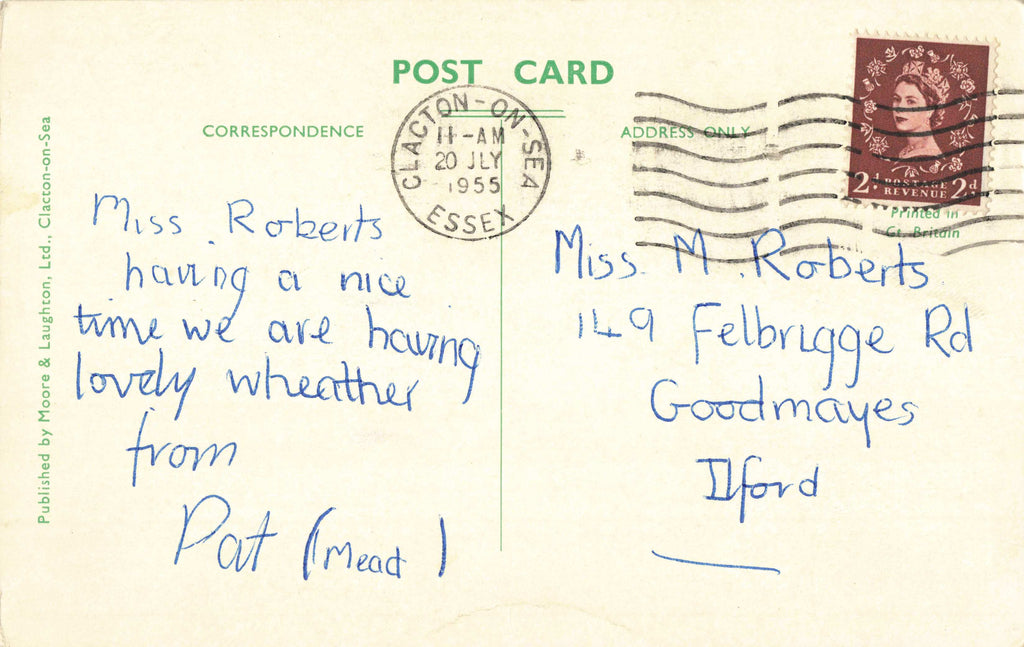 POST CARD
CORRESPONDENCE
ADDRESS ONLY
CLACTON-ON-SEA
11-AM
20 JLY
1955
ESSEX
2d POSTAGE REVENUE 2d
Printed in
Gt. Britain
Published by Moore & Laughton, Ltd., Clacton-on-Sea
Miss. Roberts
having a nice
time we are having
lovely wheather
from
Pat (Mead)
Miss. M. Roberts
149 Felbrigge Rd
Goodmayes
Ilford